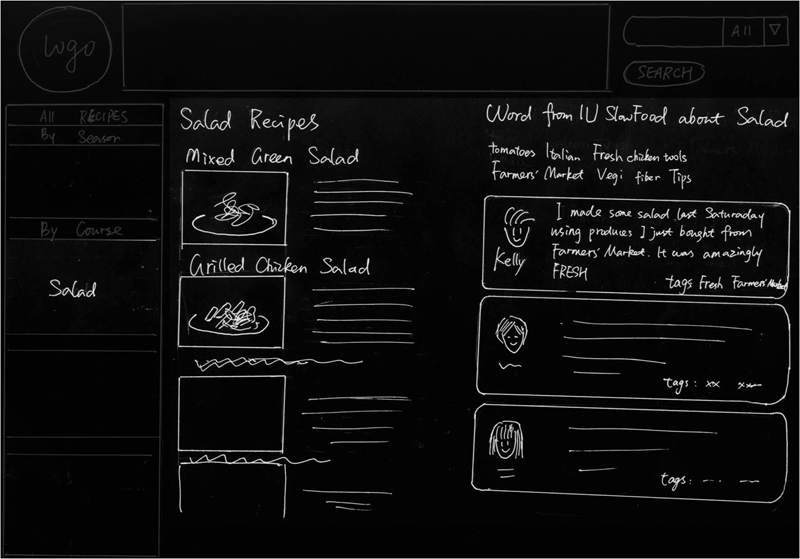 logo
All
SEARCH
All RECIPES
By Season
By Course
Salad
Salad Recipes
Mixed Green Salad
Grilled Chicken Salad
Word from IU SlowFood about Salad
tomatoes Italian Fresh chicken tools
Farmers' Market Vegi fiber Tips
Kelly
I made some salad last Saturaday
using produces I just bought from
Farmers' Market. It was amazingly
FRESH
tags Fresh Farmers' Market
tags: xx
tags: